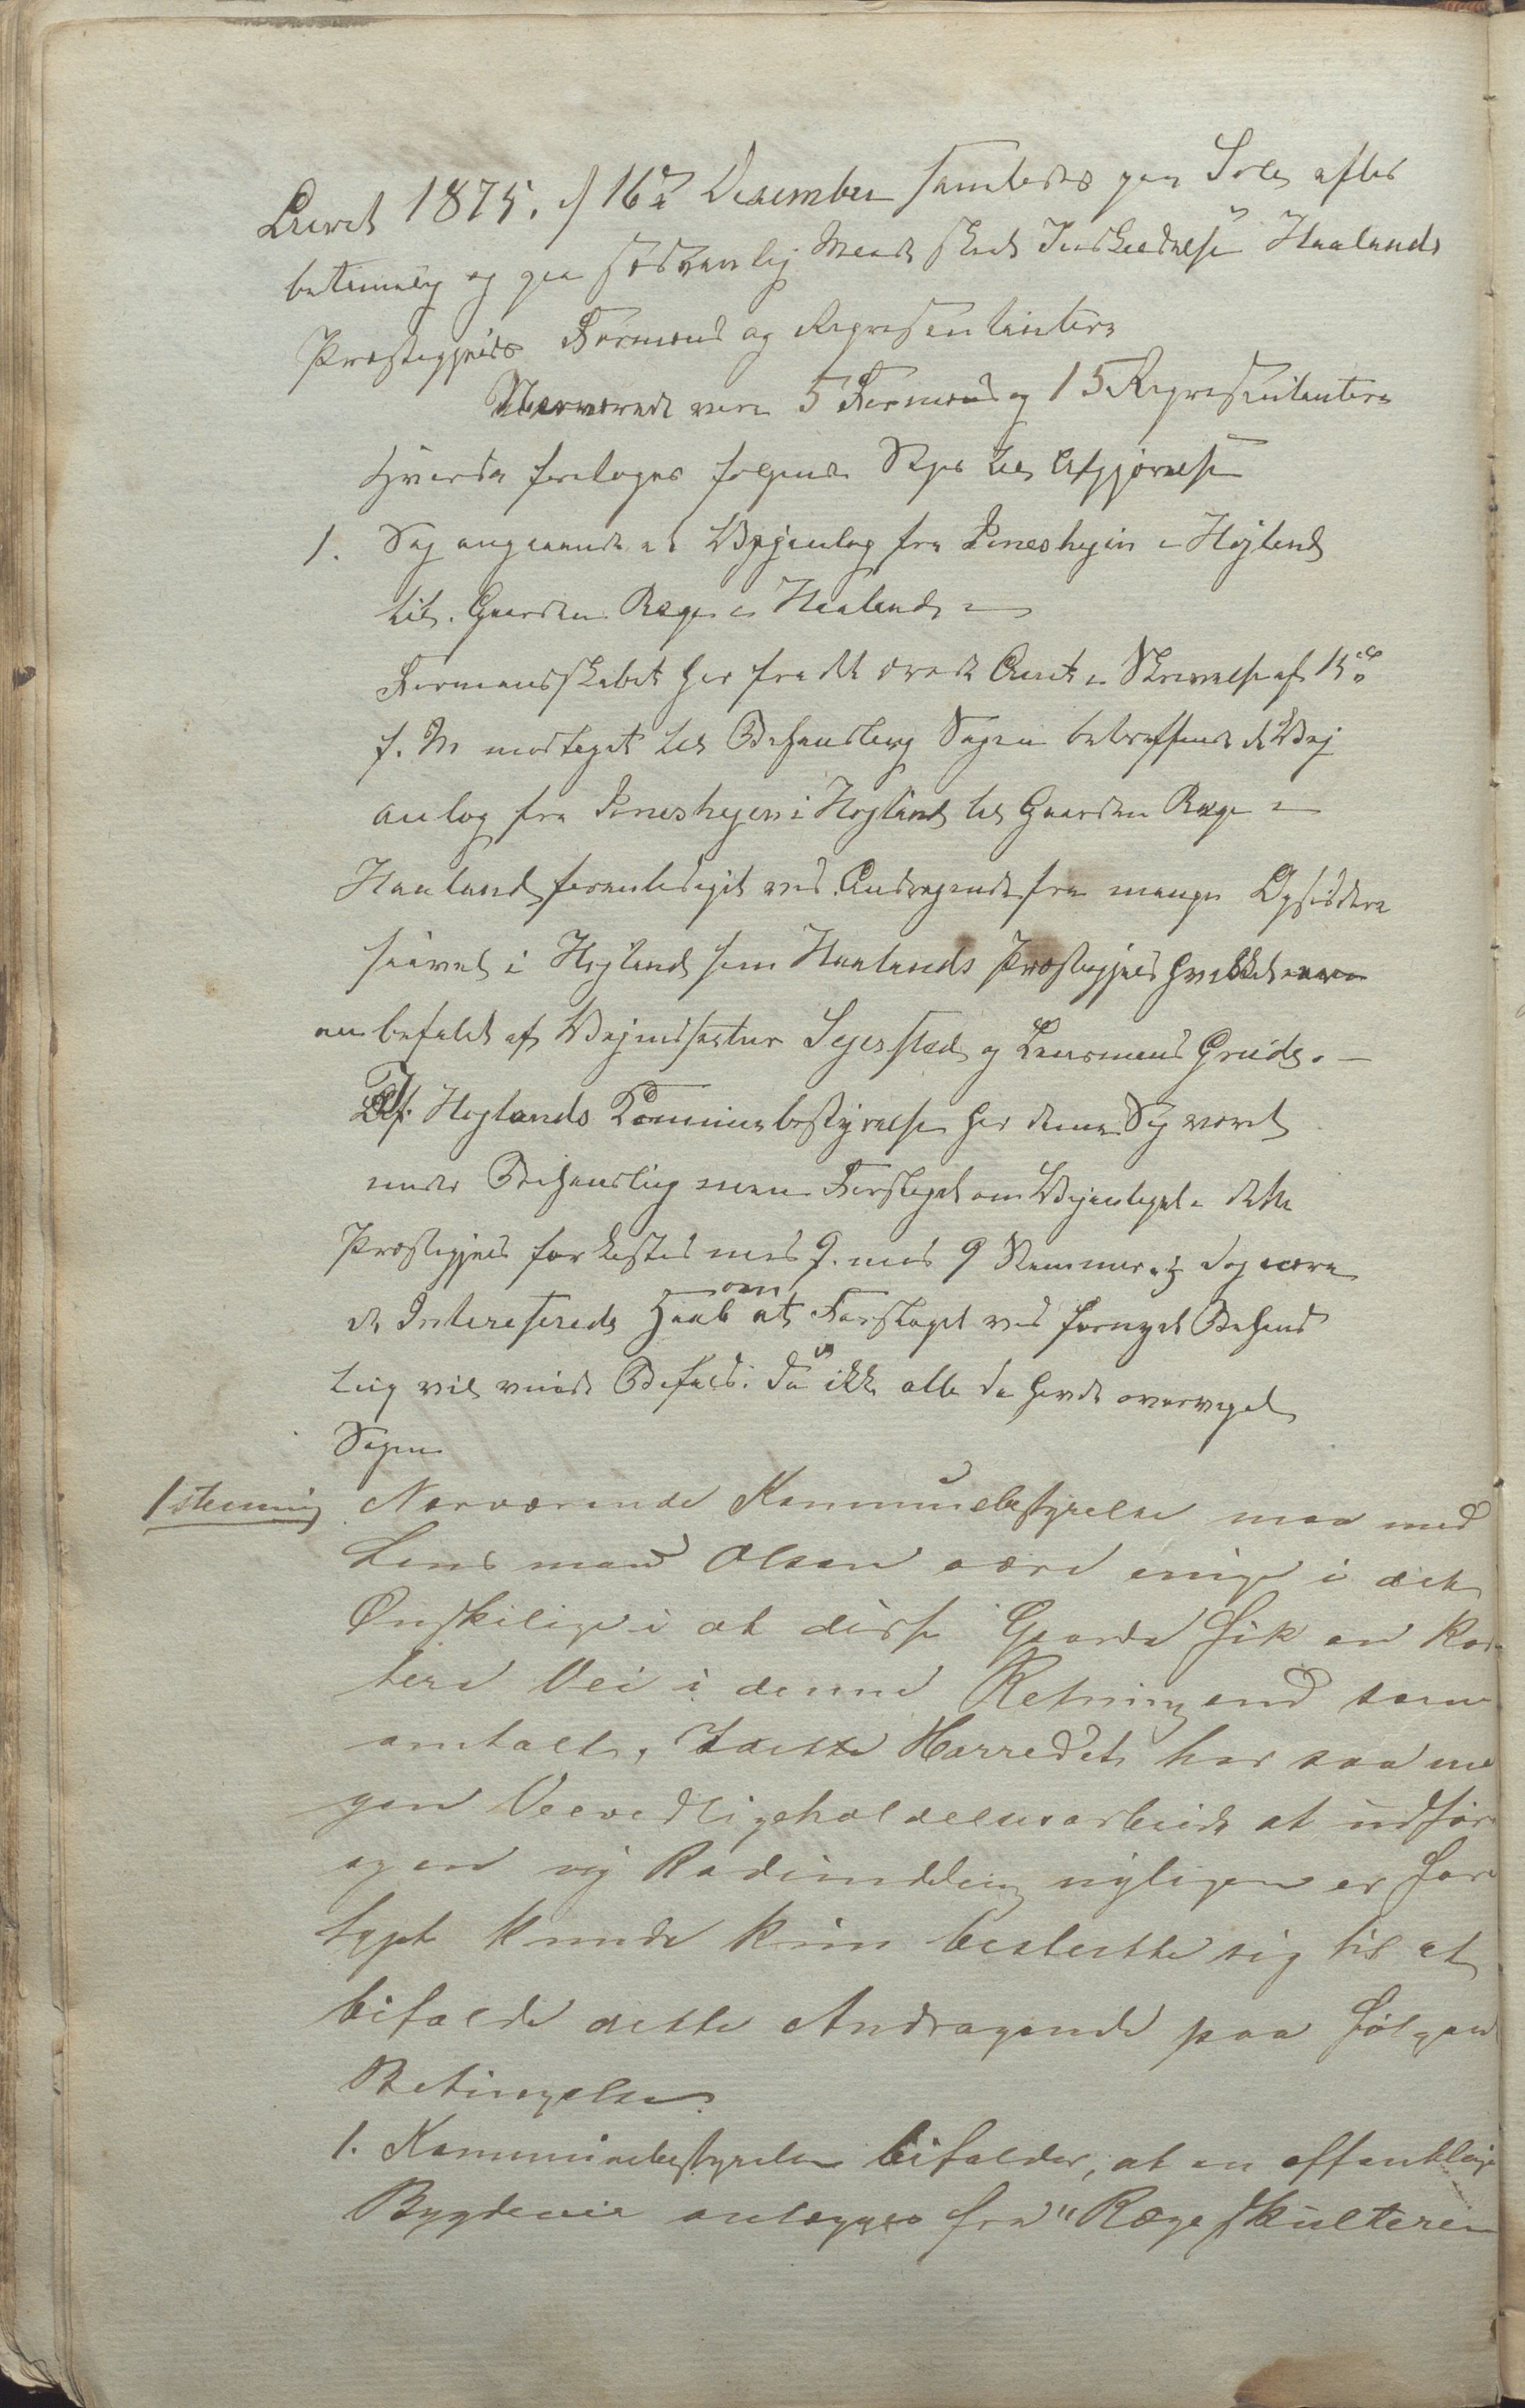 Aaret 1875. d 16de Desember samledes paa Sole efter
betimelig og paa sedvanlig Maade skeed Indkaldelse Haalands
Præstegjelds Formænd og Representantere
Nærværende vare 5 Formænd og 15 Representantere
hvorda foretoges følgende Sager til Afgjørelse
1. Sag angaaende et Vejanlæg fra i Højland
til Gaarden Ræge i Haaland
Formandskabet har fra det ærede Amt i Skrivelse af 15de
f. M modtaget til Behandling Sagen betreffende et Vej
anlæg fra i Højland til Gaarden Ræge i
Haaland foranlediget ved Andragende fra mange Opsiddere
saavel i Højland som Haalands Præstegjeld hvilket
anbefalet af Vejinspektør Sejersted og Lensmand Grude. —
I Højlands Kommunebestyrelse har denne Sag været
under Behandling men Forslaget om Vejanlæget i dette
Præstegjeld forkastes med 9 mod 9 Stemmer, dog nære
de Interesserede Haab om at Forslaget ved fornyet Behand
ling vil vinde Bifald. da ikke alle da havde overveget
Sagen
1stemmig Nærværende Kommunebestyrelse maa med
Lensmand Olsen være enige i det
Ønskelige i at disse Gaarde fik en kor-
tere Vei i denne Retning end som
omtalt, Herredet har saa me
gen Veivedligeholdelsesarbeide at udføre
og en ny Rodeinddeling nyligen er fore
tagt kunde kun beslutte sig til at
bifalde dette Andragende paa følgende
Betingelser
1. Kommunebestyrelsen bifalder, at en offentlig
Bygdevei anlægges fra "Rægeskulteren